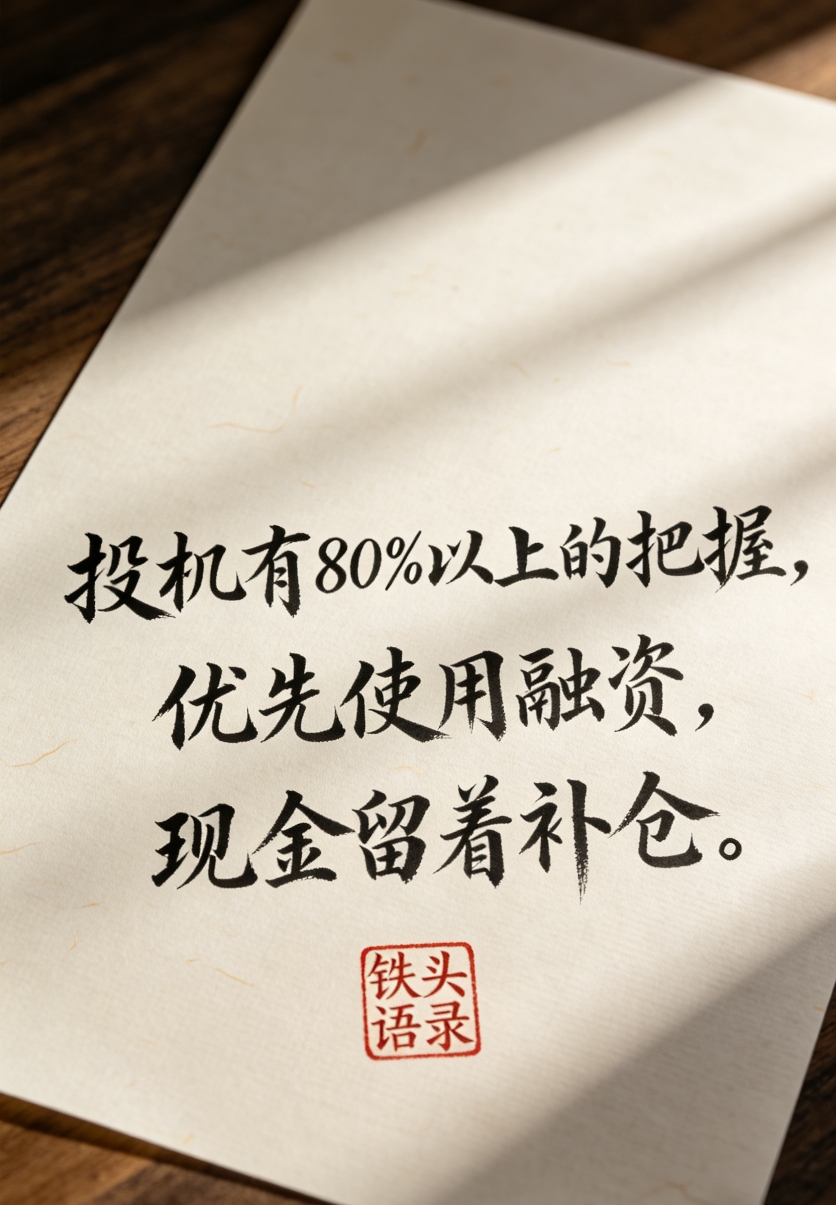 投机有80%以上的把握，
优先使用融资，
现金留着补仓。
铁头
语录